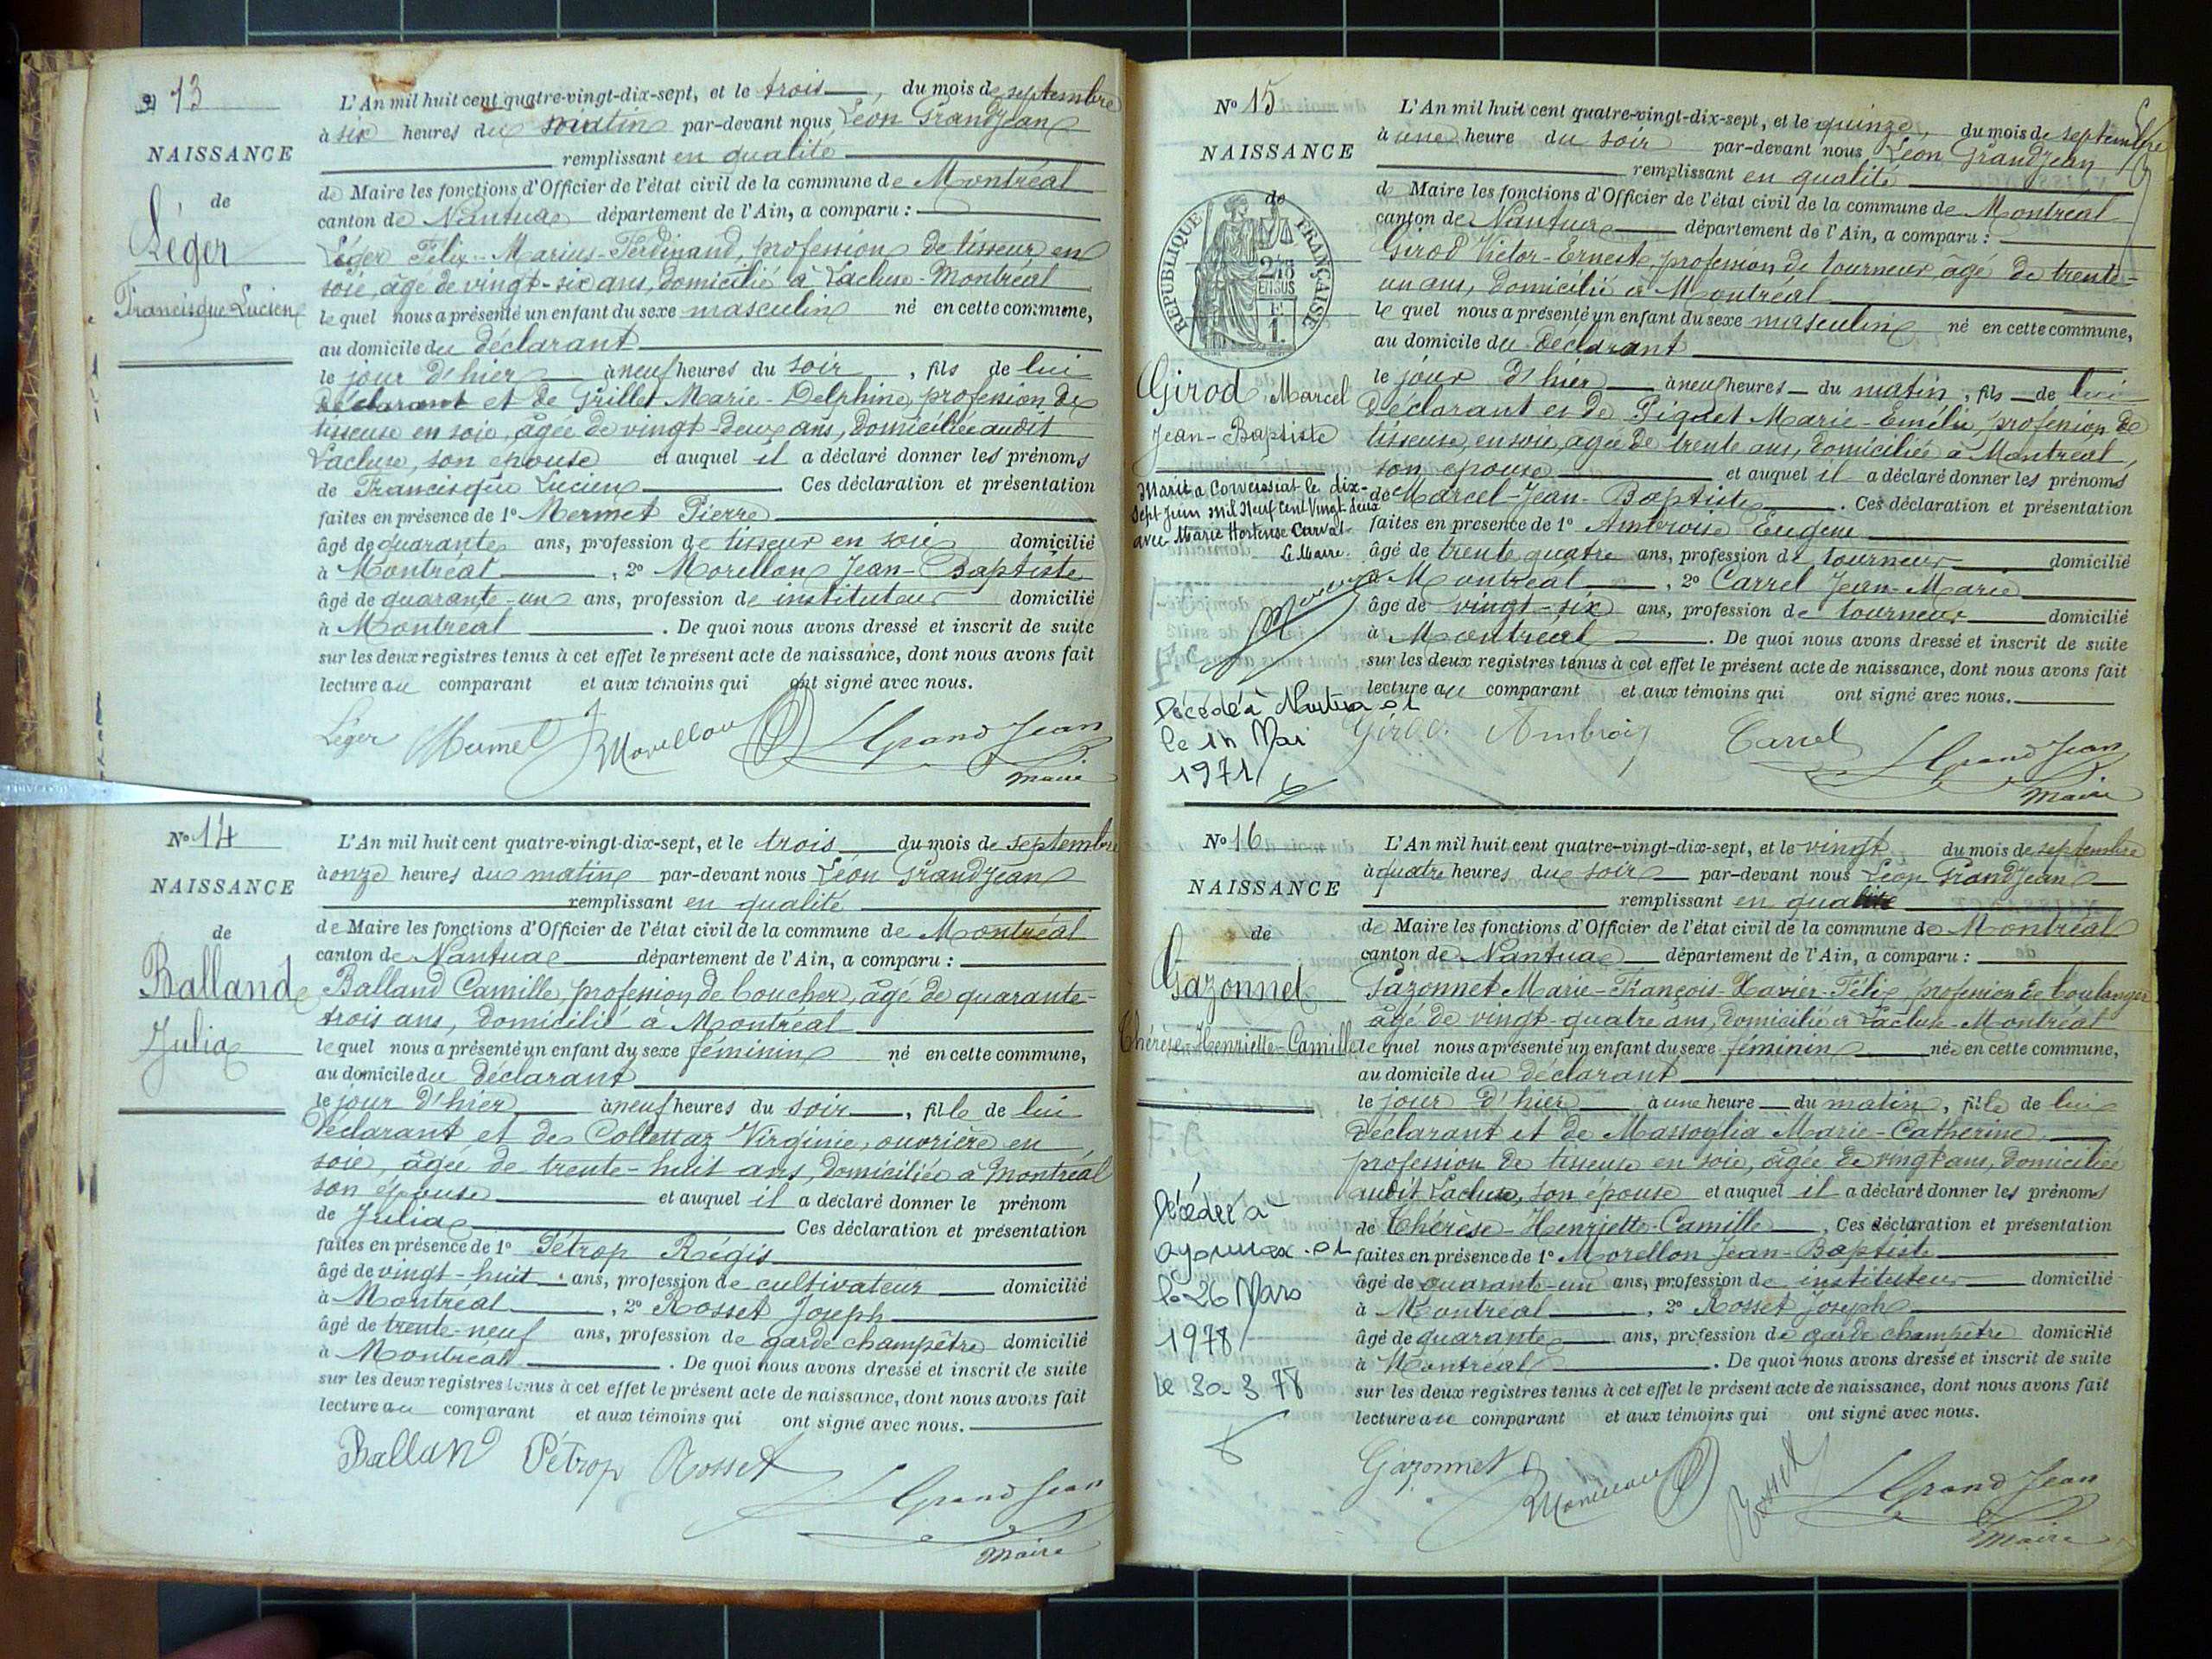 13
NAISSANCE
de
Léger
Francisque Lucien
L'An mil huit cent quatre-vingt-dix-sept, et le trois, du mois de septembre
à six heures du matin par-devant nous Léon Grandjean
remplissant en qualité
de Maire les fonctions d'Officier de l'état civil de la commune de Montréal
canton de Nantua département de l'Ain, a comparu :
Léger Félix-Marius-Ferdinand, profession de tisseur en
soie, âgé de vingt-six ans, domicilié à Lacluse-Montréal
lequel nous a présenté un enfant du sexe masculin né en cette commune,
au domicile du déclarant
le jour d'hier à neuf heures du soir, fils de lui
déclarant et de Grillet Marie-Delphine, profession de
tisseuse en soie, âgée de vingt-deux ans, domiciliée audit
Lacluse, son épouse et auquel il a déclaré donner les prénoms
de Francisque Lucien. Ces déclaration et présentation
faites en présence de 1° Mermet Pierre
âgé de quarante ans, profession de tisseur en soie domicilié
à Montréal, 2° Morellon Jean-Baptiste
âgé de quarante-un ans, profession de instituteur domicilié
à Montréal. De quoi nous avons dressé et inscrit de suite
sur les deux registres tenus à cet effet le présent acte de naissance, dont nous avons fait
lecture au comparant et aux témoins qui ont signé avec nous.
Léger Mermet Morellon Grandjean
Maire
N° 14
NAISSANCE
de
Balland
Julia
L'An mil huit cent quatre-vingt-dix-sept, et le trois du mois de septembre
à onze heures du matin par-devant nous Léon Grandjean
remplissant en qualité
de Maire les fonctions d'Officier de l'état civil de la commune de Montréal
canton de Nantua département de l'Ain, a comparu :
Balland Camille, profession de boucher, âgé de quarante-
trois ans, domicilié à Montréal
lequel nous a présenté un enfant du sexe féminin né en cette commune,
au domicile du déclarant
le jour d'hier à neuf heures du soir, fille de lui
déclarant et de Collettaz Virginie, ouvrière en
soie, âgée de trente-huit ans, domiciliée à Montréal
son épouse et auquel il a déclaré donner le prénom
de Julia Ces déclaration et présentation
faites en présence de 1° Pétrop Régis
âgé de vingt-huit ans, profession de cultivateur domicilié
à Montréal, 2° Rosset Joseph
âgé de trente-neuf ans, profession de garde champêtre domicilié
à Montréal. De quoi nous avons dressé et inscrit de suite
sur les deux registres tenus à cet effet le présent acte de naissance, dont nous avons fait
lecture au comparant et aux témoins qui ont signé avec nous.
Balland Pétrop Rosset
Grandjean
Maire
N° 15
NAISSANCE
de
REPUBLIQUE FRANÇAISE
2/10
EN SUS
1 F.
Girod Marcel
Jean-Baptiste
Marié à Corveissiat le dix-
sept Juin mil Neuf Cent Vingt deux
avec Marie Hortense Carval
Le Maire.
Décédé à Nantua 01
le Mai
1971
L'An mil huit cent quatre-vingt-dix-sept, et le quinze, du mois de septembre
à une heure du soir par-devant nous Léon Grandjean
remplissant en qualité
de Maire les fonctions d'Officier de l'état civil de la commune de Montréal
canton de Nantua département de l'Ain, a comparu :
Girod Victor-Ernest, profession de tourneur âgé de trente-
un ans, domicilié à Montréal
lequel nous a présenté un enfant du sexe masculin né en cette commune,
au domicile du déclarant
le jour d'hier à neuf heures du matin, fils de lui
déclarant et de Piquet Marie-Emélie, profession de
tisseuse en soie, âgée de trente ans, domiciliée à Montréal,
son épouse et auquel il a déclaré donner les prénoms
de Marcel-Jean-Baptiste. Ces déclaration et présentation
faites en présence de 1° Ambroise Eugène
âgé de trente quatre ans, profession de tourneur domicilié
à Montréal, 2° Carrel Jean-Marie
âgé de vingt-six ans, profession de tourneur domicilié
à Montréal. De quoi nous avons dressé et inscrit de suite
sur les deux registres tenus à cet effet le présent acte de naissance, dont nous avons fait
lecture au comparant et aux témoins qui ont signé avec nous.
Girod Ambroise Carrel Grandjean
Maire
N° 16
NAISSANCE
de
Gazonnet
Thérèse-Henriette-Camille
Décédée à
Oyonnax 01
le 26 Mars
1978
le 30-3-78
L'An mil huit cent quatre-vingt-dix-sept, et le vingt du mois de septembre
à quatre heures du soir par-devant nous Léon Grandjean
remplissant en qualité
de Maire les fonctions d'Officier de l'état civil de la commune de Montréal
canton de Nantua département de l'Ain, a comparu :
Gazonnet Marie-François-Xavier-Félix, profession de boulanger
âgé de vingt-quatre ans, domicilié à Lacluse-Montréal
lequel nous a présenté un enfant du sexe féminin née en cette commune,
au domicile du déclarant
le jour d'hier à une heure du matin, fille de lui
déclarant et de Massoglia Marie-Catherine,
profession de tisseuse en soie, âgée de vingt ans, domiciliée
audit Lacluse, son épouse et auquel il a déclaré donner les prénoms
de Thérèse-Henriette-Camille. Ces déclaration et présentation
faites en présence de 1° Morellon Jean-Baptiste
âgé de quarante-un ans, profession de instituteur domicilié
à Montréal, 2° Rosset Joseph
âgé de quarante ans, profession de garde champêtre domicilié
à Montréal. De quoi nous avons dressé et inscrit de suite
sur les deux registres tenus à cet effet le présent acte de naissance, dont nous avons fait
lecture au comparant et aux témoins qui ont signé avec nous.
Gazonnet Morellon Rosset Grandjean
Maire